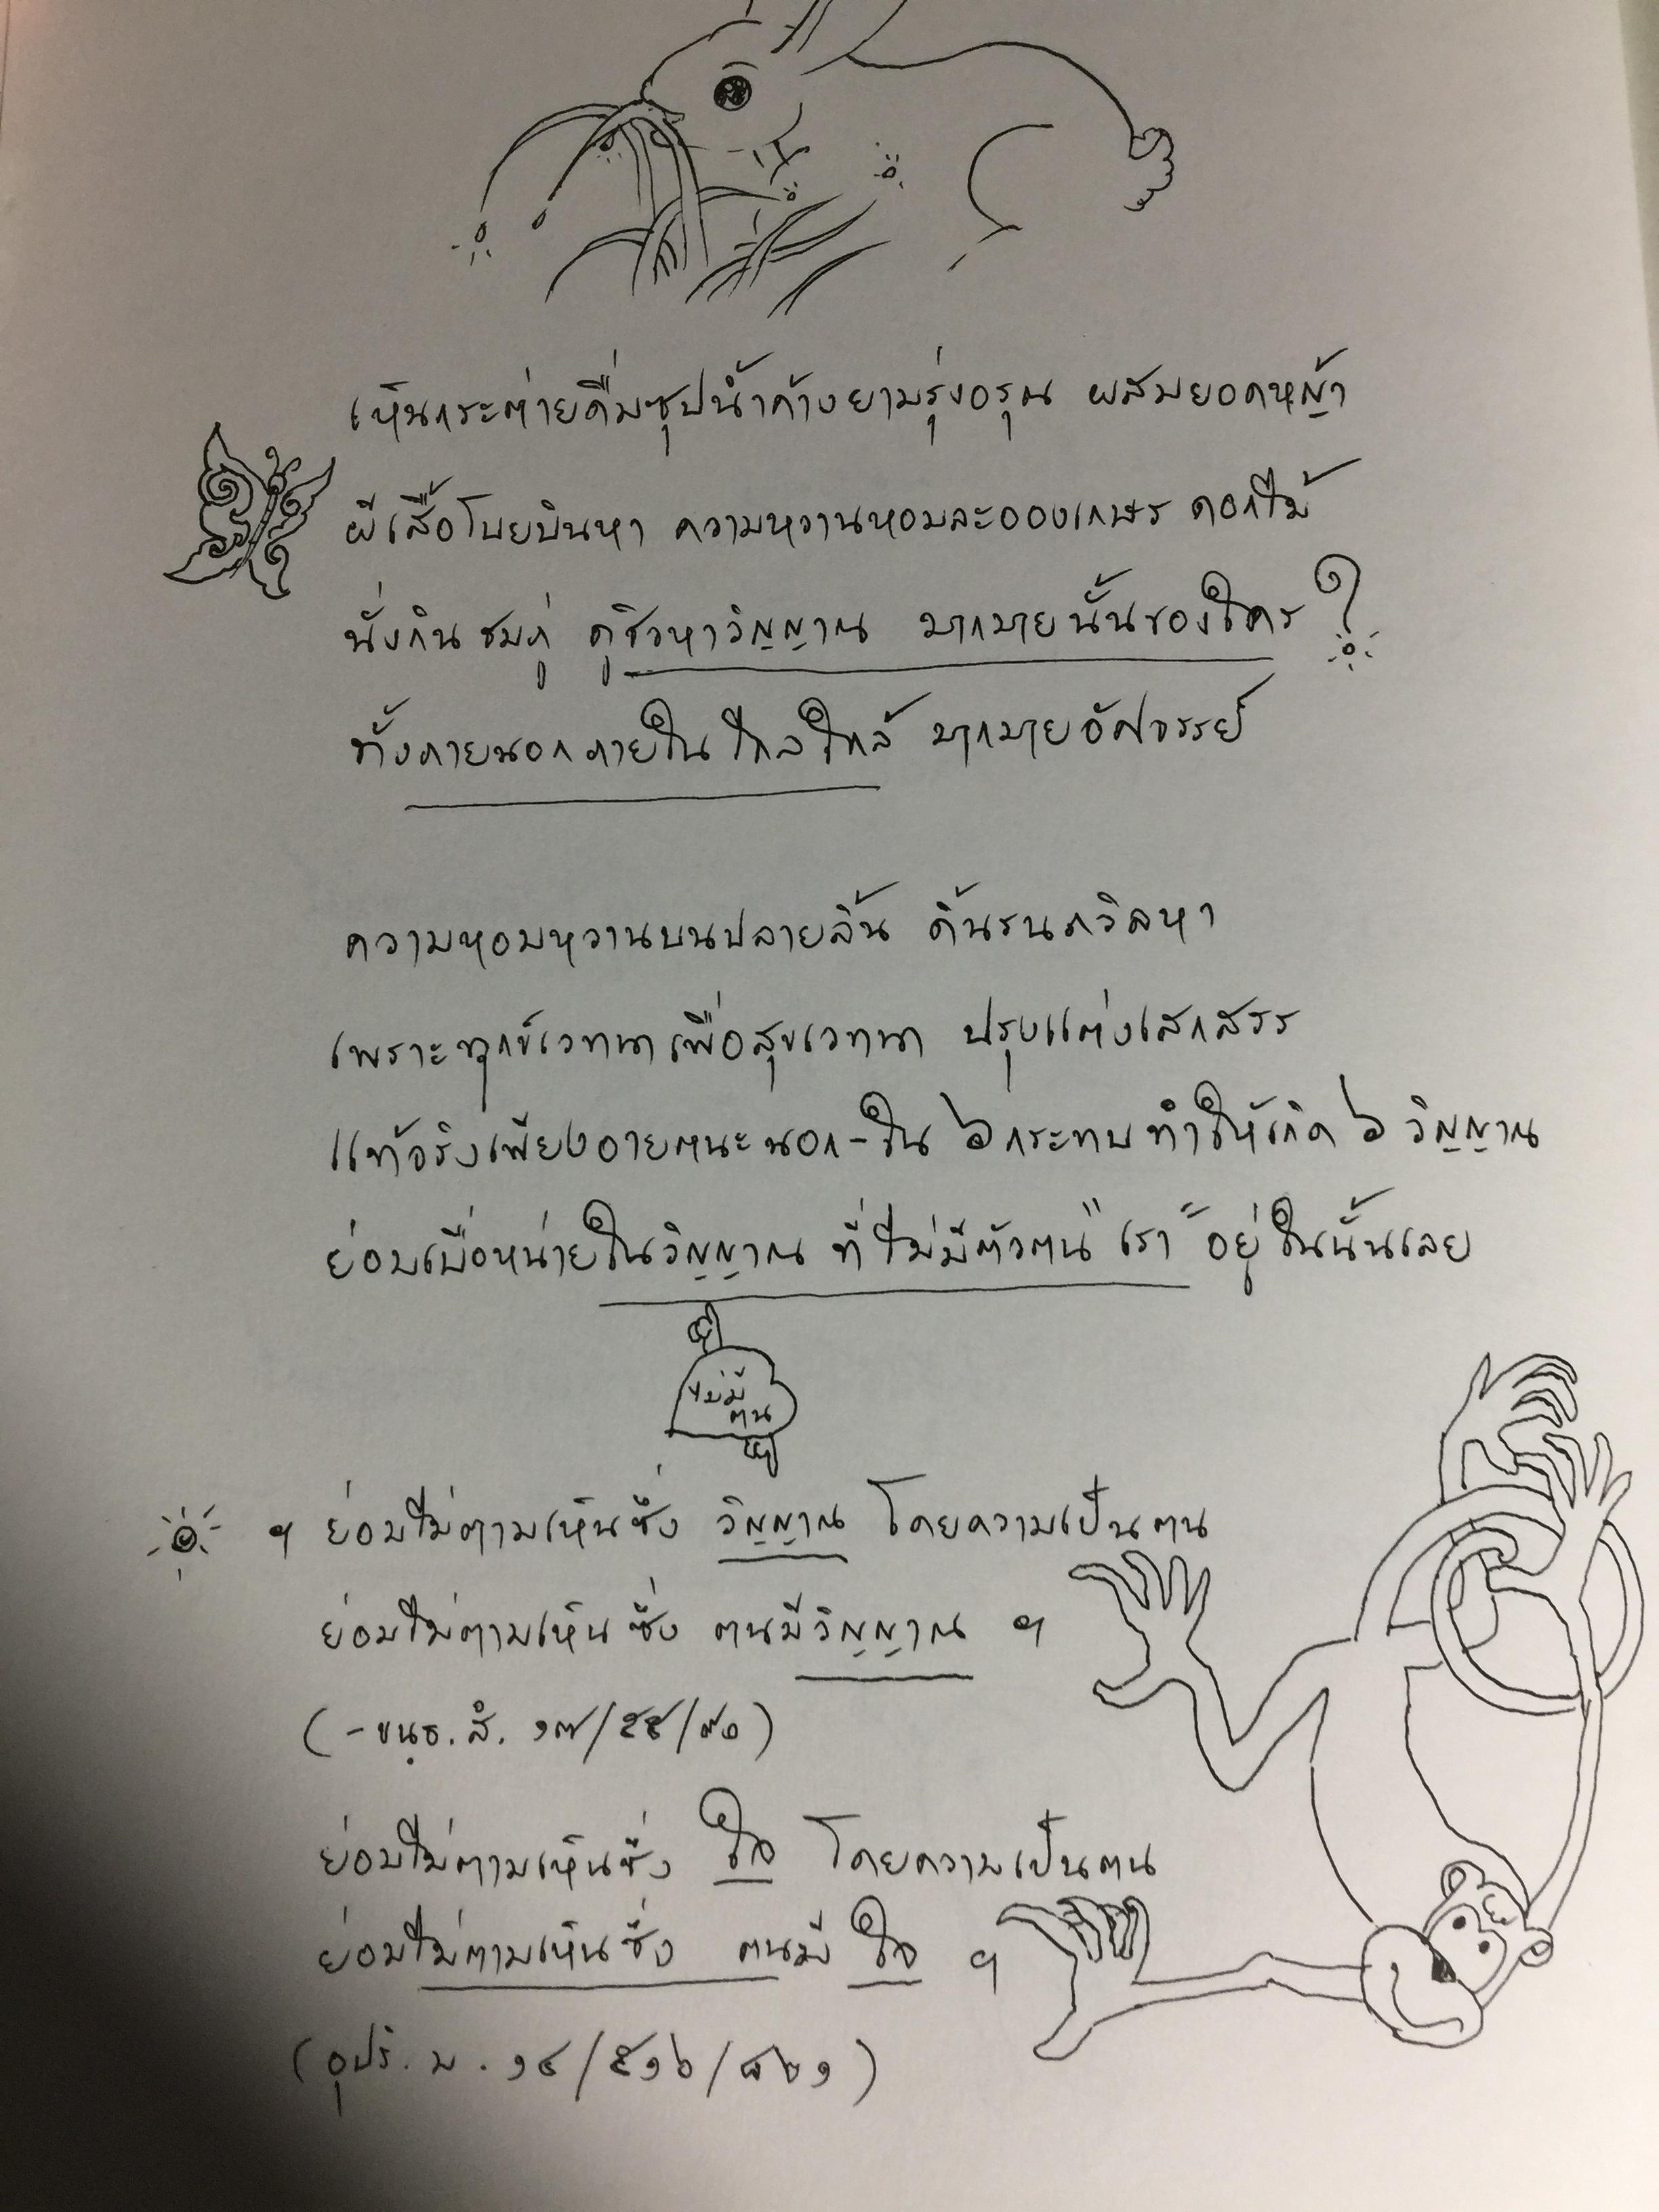 เห็นกระต่ายดื่มซุปน้ำค้างยามรุ่งอรุณ ผสมยอดหญ้า
ผีเสื้อโบยบินหา ความหวานหอมละอองเกษร ดอกไม้
นั่งกินชมภู่ ดูชิวหาวิญญาณ มากมายนั้นของใคร ?
ทั้งภายนอกภายใน ไกลใกล้ มากมายอัศจรรย์
ความหอมหวานบนปลายลิ้น ดิ้นรนถวิลหา
เพราะทุกข์เวทนาเพื่อสุขเวทนา ปรุงแต่งเสกสรร
แท้จริงเพียงอายตนะนอก-ใน ๖ กระทบทำให้เกิด ๖ วิญญาณ
ย่อมเบื่อหน่ายในวิญญาณ ที่ไม่มีตัวตน "เรา" อยู่ในนั้นเลย
ไม่มี
ตน
ฯ ย่อมไม่ตามเห็นซึ่ง วิญญาณ โดยความเป็นตน
ย่อมไม่ตามเห็นซึ่ง ตนมีวิญญาณ ฯ
(-ขนฺธ. สํ. ๑๗/๕๕/๙๑)
ย่อมไม่ตามเห็นซึ่ง ใจ โดยความเป็นตน
ย่อมไม่ตามเห็นซึ่ง ตนมี ใจ ฯ
(อุปริ. ม. ๑๔/๕๑๖/๘๒๑)